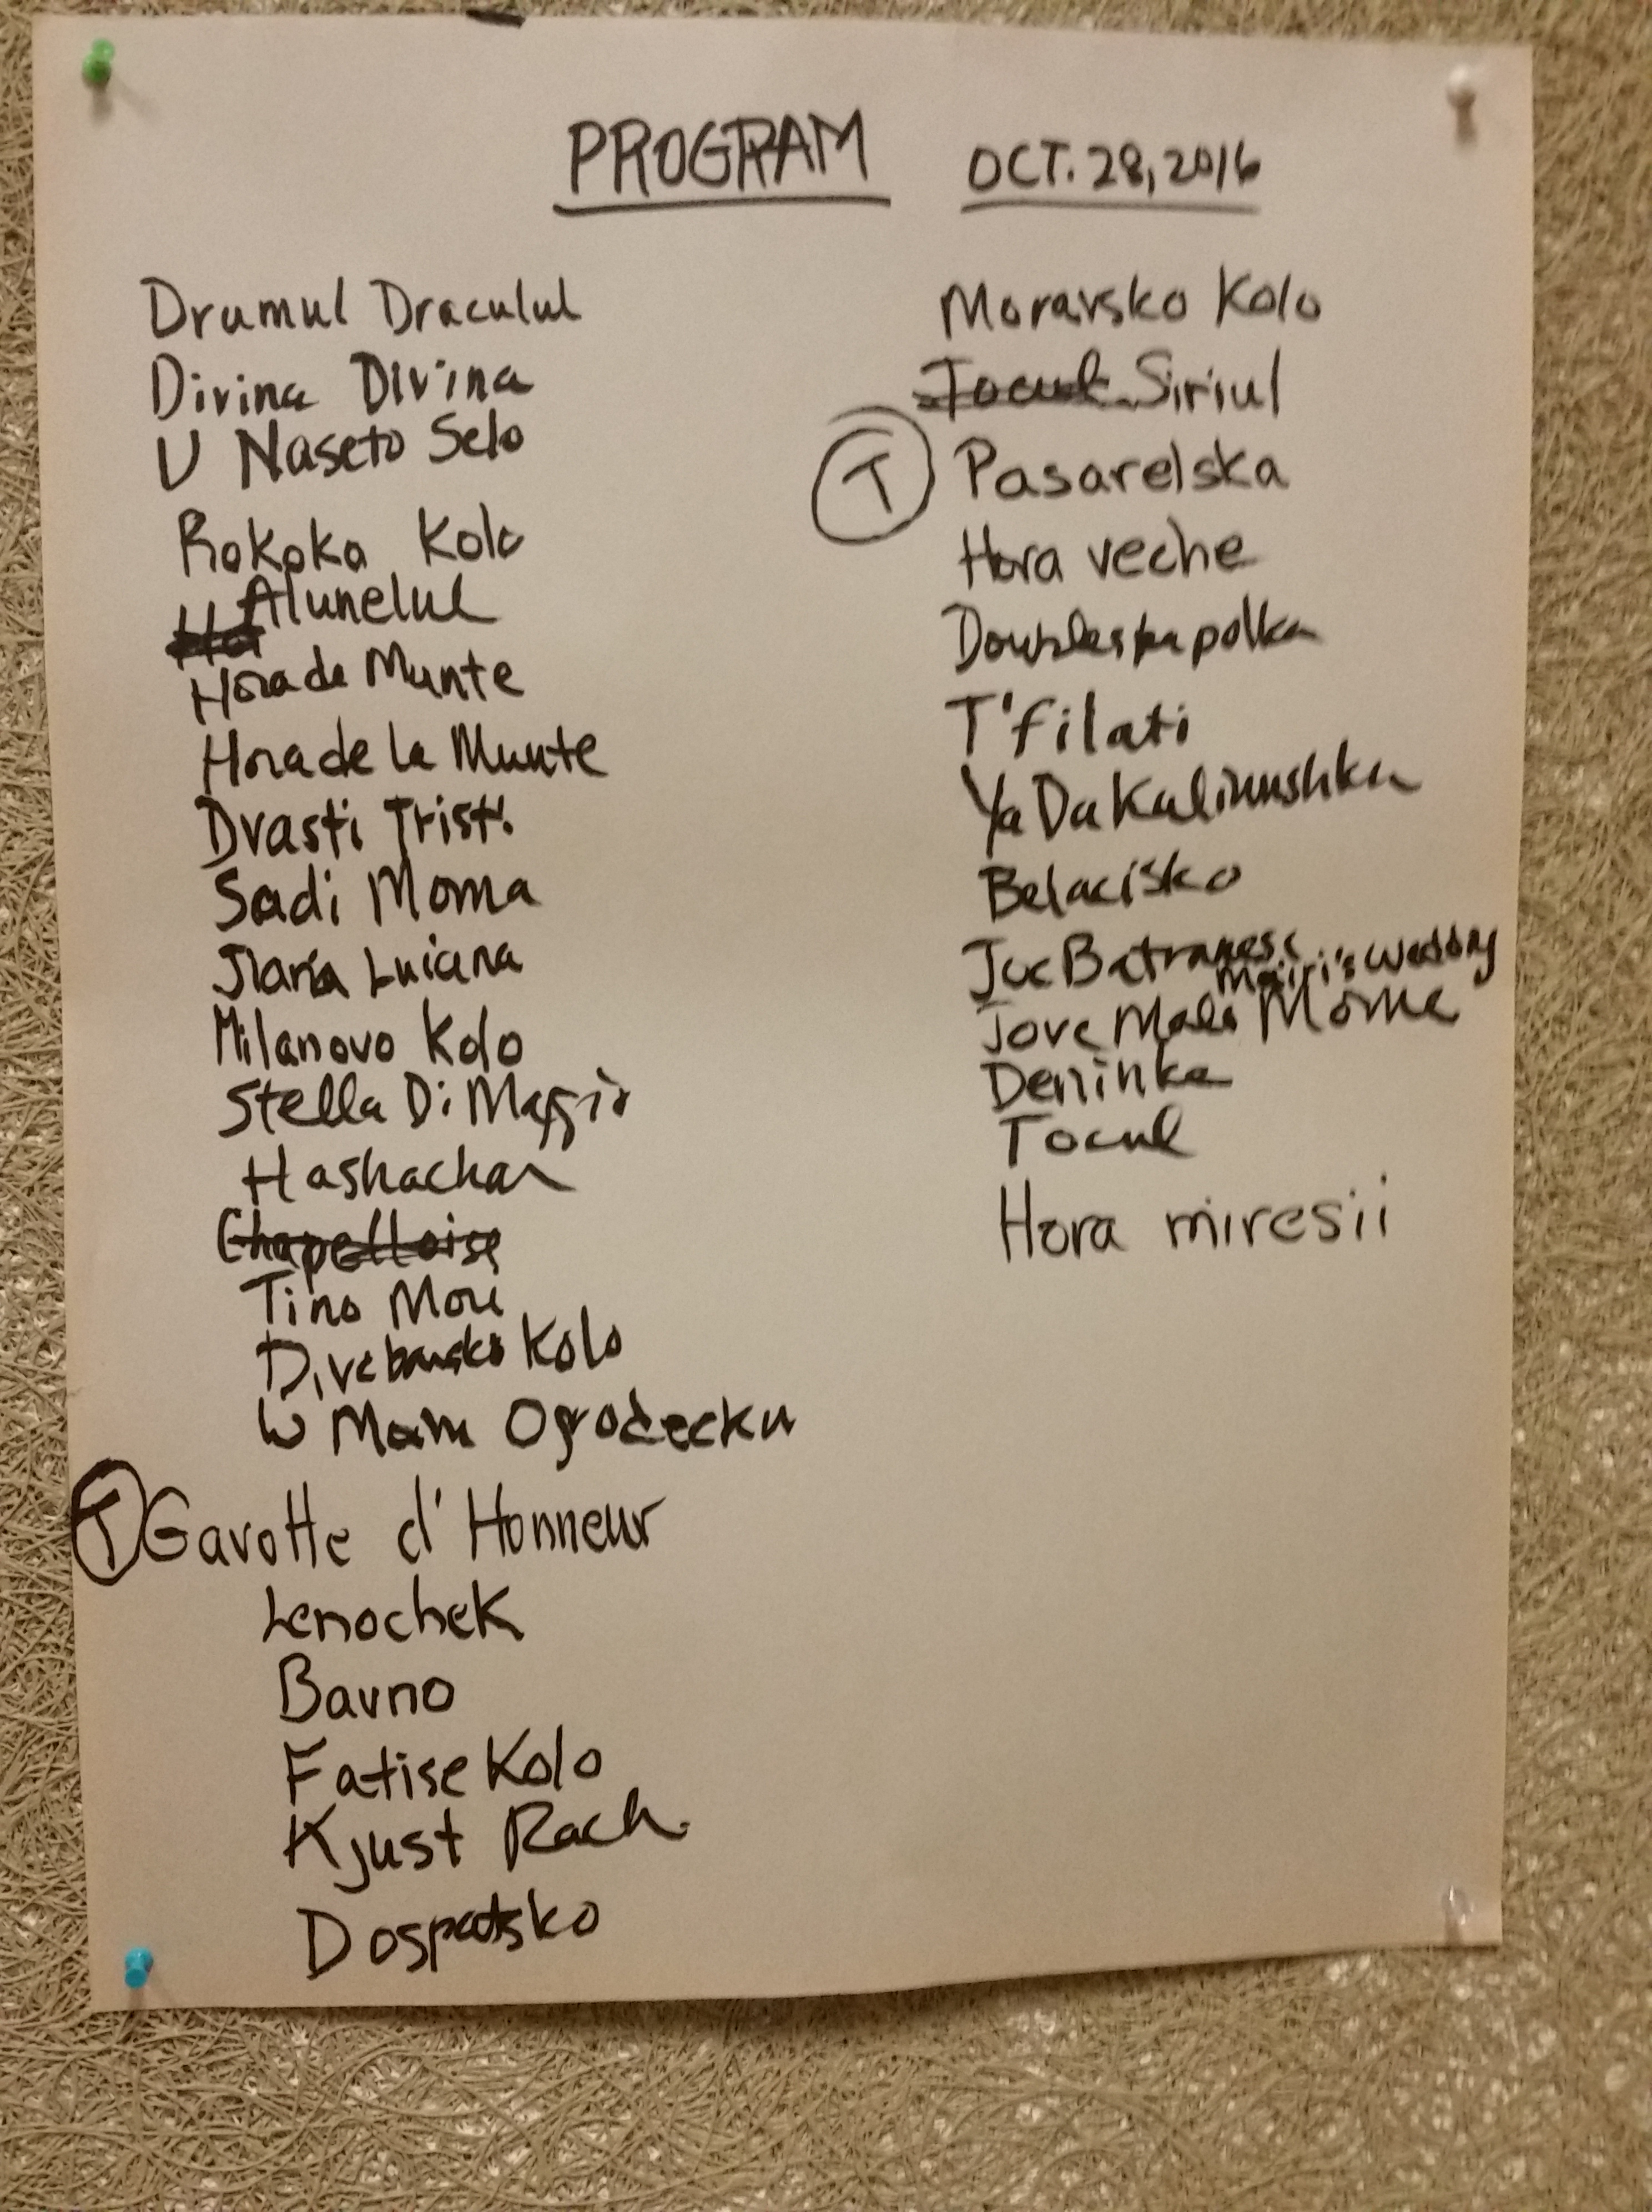 PROGRAM OCT. 28, 2016
Drumul Dracului
Divina Divina
U Naseto Selo
Rokoka Kolo
Alunelul
Hora de Munte
Hora de la Munte
Drasti Tristi
Sadi Moma
Ilaria Luiciana
Milanovo Kolo
Stella Di Maggio
Hashachar
Chapelloise
Tino Mori
Divcibarsko Kolo
W Moim Ogrodecku
T Gavotte d'Honneur
Lenochek
Bavno
Fatise Kolo
Kjust Rach
Dospatsko
Moravsko Kolo
Jocul Siriul
T Pasarelska
Hora veche
Doubleska polka
T'filati
Ya Da Kalinushku
Belacisko
Joc Batranesc
Mairi's Wedding
Jove Male Mome
Deninka
Tocul
Hora miresii